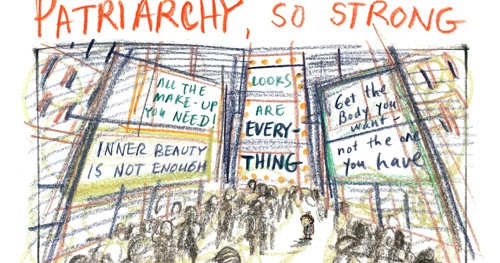 PATRIARCHY, SO STRONG
ALL THE
MAKE-UP
YOU NEED!
INNER BEAUTY
IS NOT ENOUGH
LOOKS
ARE
EVERY-
THING
Get the
Body you
want -
not the one
you have